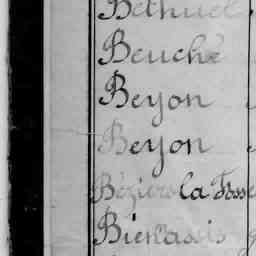 Béthuel
Beuché
Beyon
Beyon
Béziers la Fosse
Bienassis